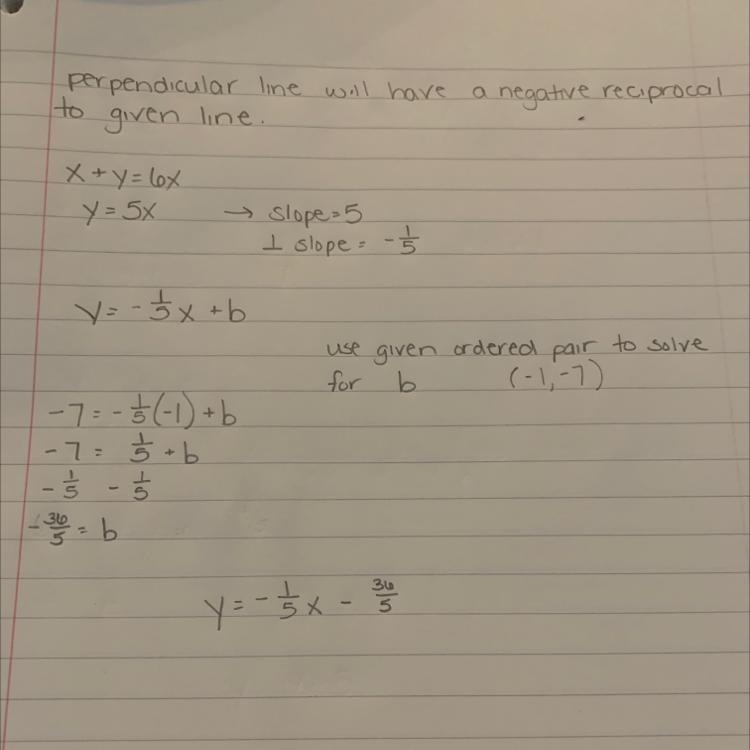 perpendicular line will have a negative reciprocal
to given line.
x + y = 6x
y = 5x → slope = 5
⊥ slope = - 1/5
y = - 1/5 x + b
use given ordered pair to solve
for b (-1, -7)
-7 = - 1/5 (-1) + b
-7 = 1/5 + b
- 1/5 - 1/5
- 36/5 = b
y = - 1/5 x - 36/5